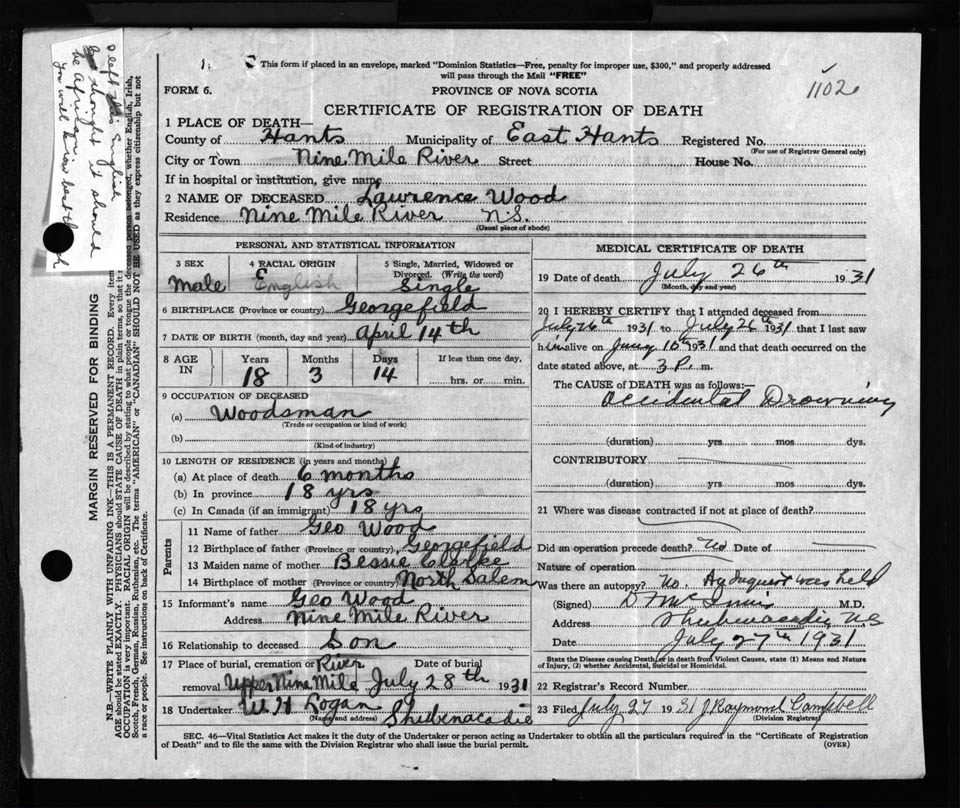 This form if placed in an envelope, marked "Dominion Statistics—Free, penalty for improper use, $300," and properly addressed
will pass through the Mail "FREE"
1102
FORM 6.
PROVINCE OF NOVA SCOTIA
CERTIFICATE OF REGISTRATION OF DEATH
1 PLACE OF DEATH—
County of Hants Municipality of East Hants Registered No.
(For use of Registrar General only)
City or Town Nine Mile River Street House No.
If in hospital or institution, give name
2 NAME OF DECEASED Lawrence Wood
Residence Nine Mile River N.S.
(Usual place of abode)
PERSONAL AND STATISTICAL INFORMATION
3 SEX
Male
4 RACIAL ORIGIN
English
5 Single, Married, Widowed or
Divorced. (Write the word)
Single
6 BIRTHPLACE (Province or country) Georgefield
7 DATE OF BIRTH (month, day and year) April 14th
8 AGE IN
Years Months Days
18 3 14
If less than one day,
hrs. or min.
9 OCCUPATION OF DECEASED
(a) Woodsman
(Trade or occupation or kind of work)
(b)
(Kind of industry)
10 LENGTH OF RESIDENCE (in years and months)
(a) At place of death 6 months
(b) In province 18 yrs
(c) In Canada (if an immigrant) 18 yrs
Parents
11 Name of father Geo Wood
12 Birthplace of father (Province or country) Georgefield
13 Maiden name of mother Bessie Clarke
14 Birthplace of mother (Province or country) North Salem
15 Informant's name Geo Wood
Address Nine Mile River
16 Relationship to deceased Son
17 Place of burial, cremation or River Date of burial
removal Upper Nine Mile July 28th 1931
18 Undertaker W H Logan
(Name and address) Shubenacadie
MEDICAL CERTIFICATE OF DEATH
19 Date of death July 26th 1931
(Month, day and year)
20 I HEREBY CERTIFY that I attended deceased from
July 26th 1931 to July 26th 1931 that I last saw
him alive on 10th 1931 and that death occurred on the
date stated above, at 3 P. m.
The CAUSE of DEATH was as follows:—
Accidental Drowning
(duration) yrs mos dys.
CONTRIBUTORY
(duration) yrs. mos. dys.
21 Where was disease contracted if not at place of death?
Did an operation precede death? No Date of
Nature of operation
Was there an autopsy? No. An Inquest was held
(Signed) D F McInnis M.D.
Address Shubenacadie N.S
Date July 27th 1931
State the Disease causing Death, or in death from Violent Causes, state (1) Means and Nature
of Injury, (2) whether Accidental, Suicidal or Homicidal.
22 Registrar's Record Number
23 Filed July 27 1931 J Raymond Campbell
(Division Registrar)
SEC. 46—Vital Statistics Act makes it the duty of the Undertaker or person acting as Undertaker to obtain all the particulars required in the "Certificate of Registration
of Death" and to file the same with the Division Registrar who shall issue the burial permit.
(OVER)
MARGIN RESERVED FOR BINDING
N.B.—WRITE PLAINLY WITH UNFADING INK—THIS IS A PERMANENT RECORD. Every item
AGE should be stated EXACTLY. PHYSICIANS should STATE CAUSE OF DEATH in plain terms, so that it
OCCUPATION is very important. RACIAL ORIGIN will be described by stating to what people or tongue the deceased person belonged, whether English, Irish,
Scotch, French, German, Russian, Ruthenian, etc. The terms "AMERICAN" or "CANADIAN" SHOULD NOT BE USED as they express citizenship but not
a race or people. See instructions on back of Certificate.
I left this English
thought it should
be African
You will know best